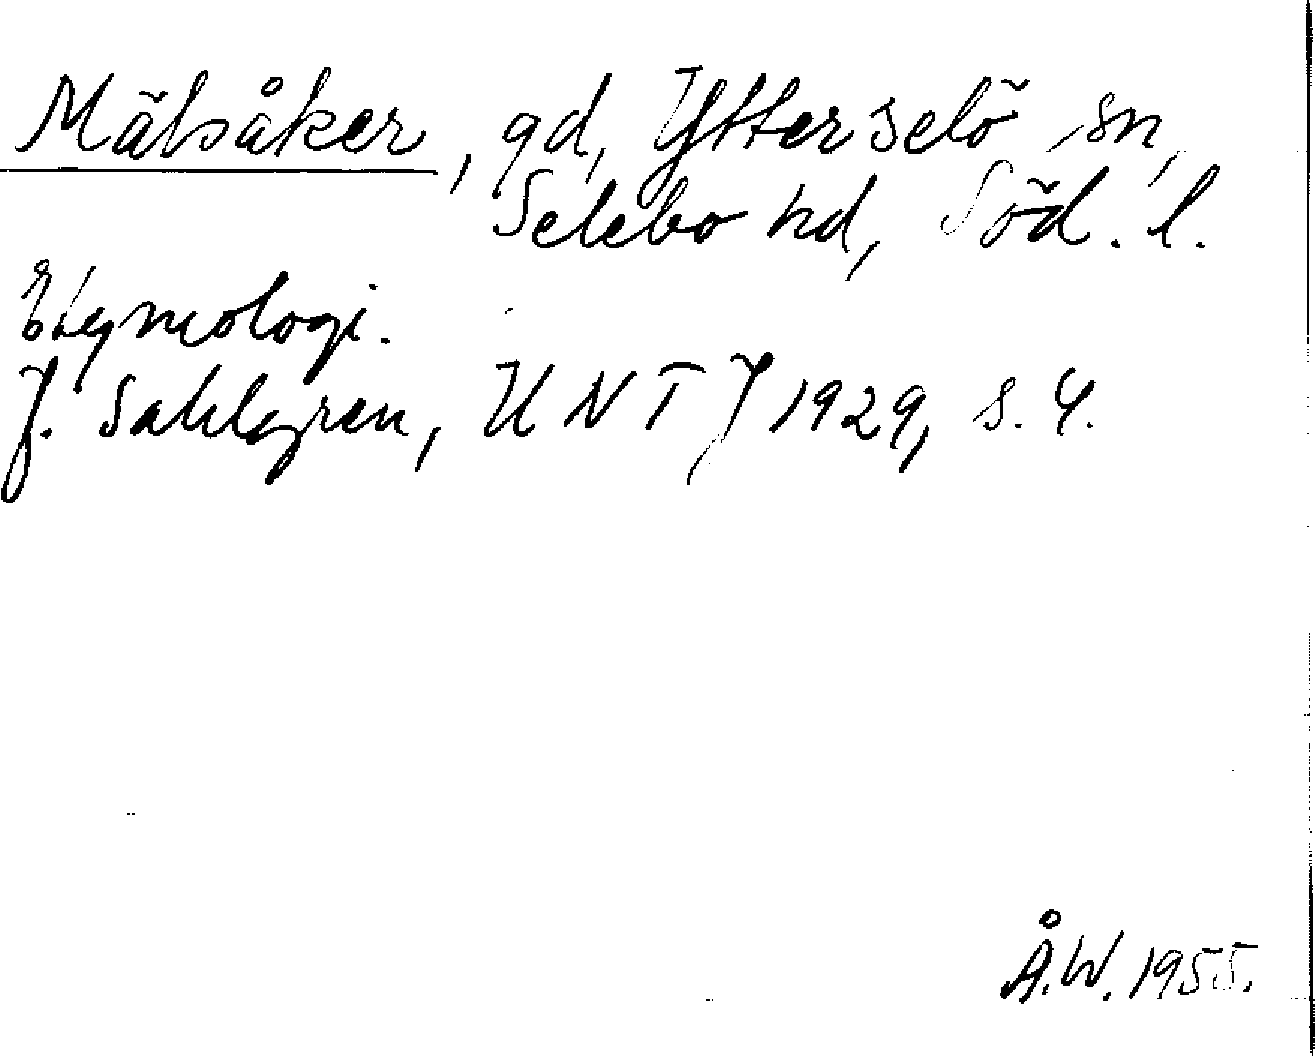 Mälsåker, gd, Ytterselö sn,
Selebo hd, Söd. l.
Etymologi.
J. Sahlgren, UNTJ 1929, s. 4.
Å.W. 1955.